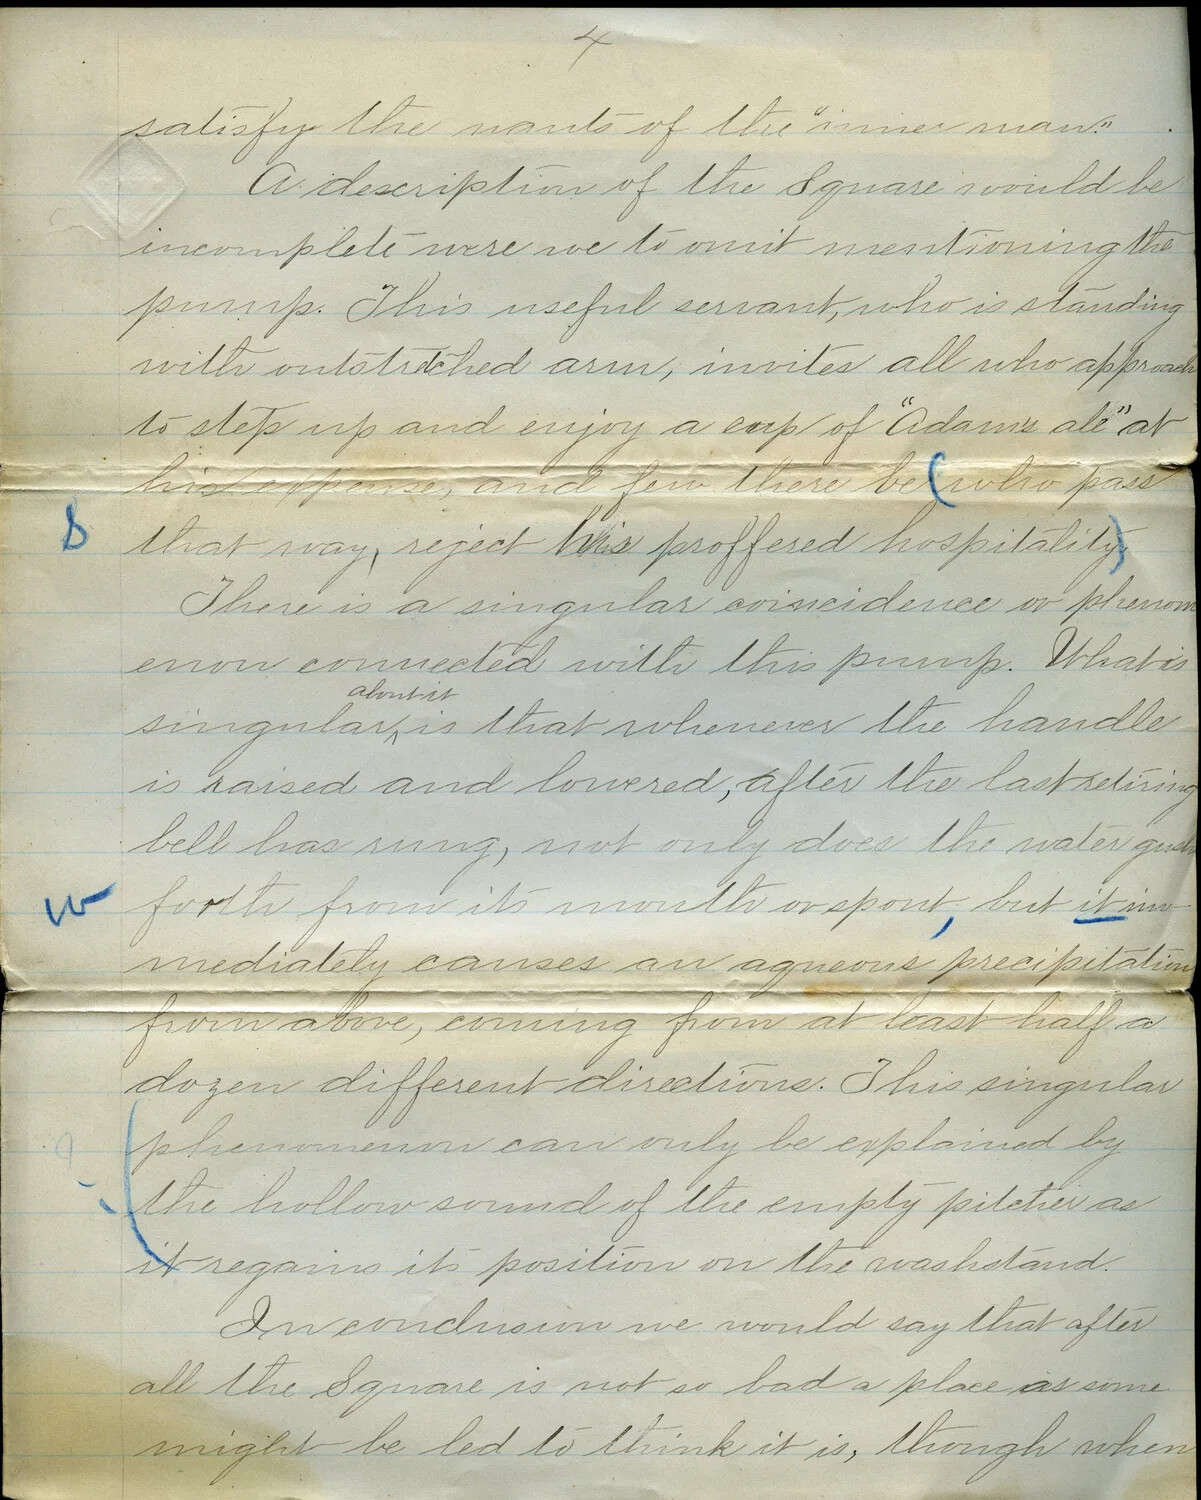 4
satisfy the wants of the "inner man."
A description of the Square would be
incomplete were we to omit mentioning the
pump. This useful servant, who is standing
with outstretched arm, invites all who approach
to step up and enjoy a cup of "Adam's ale" at
his expense, and few there be (who pass
S
that way, reject his proffered hospitality)
There is a singular coincidence or phenom
enon connected with this pump. What is
about it
singular, ^ is that whenever the handle
is raised and lowered, after the last retiring
bell has rung, not only does the water gush
W
forth from its mouth or spout, but it im-
mediately causes an aqueous precipitation
from above, coming from at least half a
dozen different directions. This singular
phenomenon can only be explained by
the hollow sound of the empty pitcher as
it regains its position on the washstand.
In conclusion we would say that after
all the Square is not so bad a place as some
might be led to think it is, though when